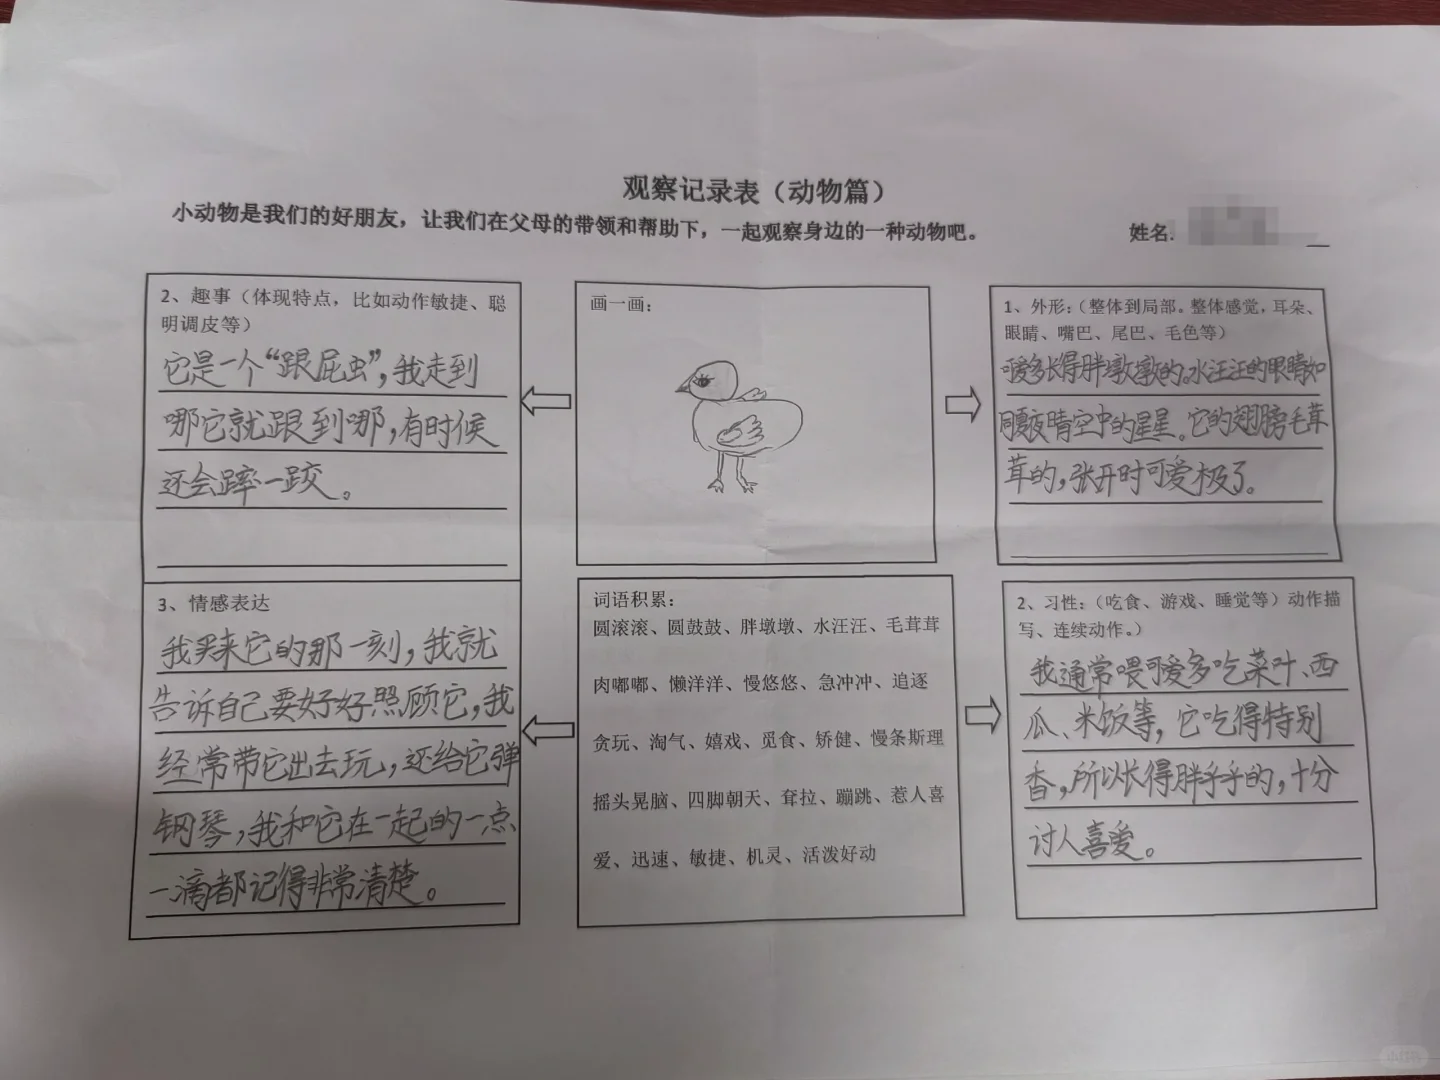 观察记录表（动物篇）
小动物是我们的好朋友，让我们在父母的带领和帮助下，一起观察身边的一种动物吧。
姓名.
2、趣事（体现特点，比如动作敏捷、聪
明调皮等）
它是一个“跟屁虫”，我走到
哪它就跟到哪，有时候
还会蹿一跤。
画一画：
1、外形：（整体到局部。整体感觉，耳朵、
眼睛、嘴巴、尾巴、毛色等）
可爱多长得胖墩墩的。水汪汪的眼睛如
同夏夜晴空中的星星。它的翅膀毛茸
茸的，张开时可爱极了。
3、情感表达
我买来它的那一刻，我就
告诉自己要好好照顾它，我
经常带它出去玩，还给它弹
钢琴，我和它在一起的一点
一滴都记得非常清楚。
词语积累：
圆滚滚、圆鼓鼓、胖墩墩、水汪汪、毛茸茸
肉嘟嘟、懒洋洋、慢悠悠、急冲冲、追逐
贪玩、淘气、嬉戏、觅食、矫健、慢条斯理
摇头晃脑、四脚朝天、耷拉、蹦跳、惹人喜
爱、迅速、敏捷、机灵、活泼好动
2、习性：（吃食、游戏、睡觉等）动作描
写、连续动作。）
我通常喂可爱多吃菜叶、西
瓜、米饭等，它吃得特别
香，所以长得胖乎乎的，十分
讨人喜爱。